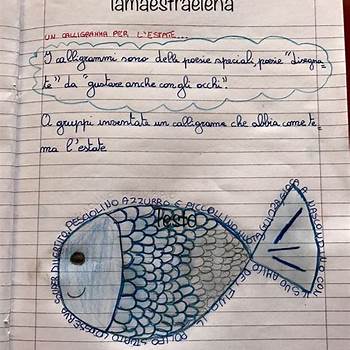 lamaestraelena
UN CALLIGRAMMA PER L'ESTATE...
I calligrammi sono delle poesie speciali, poesie "disegna=
te" da "gustare anche con gli occhi".
A gruppi inventate un calligramma che abbia come te=
ma l'estate
Testo
SUPER DIVERTITO PESCIOLINO AZZURRO E PICCOLINO
A NASCONDINO CON
IL SUO AMICO